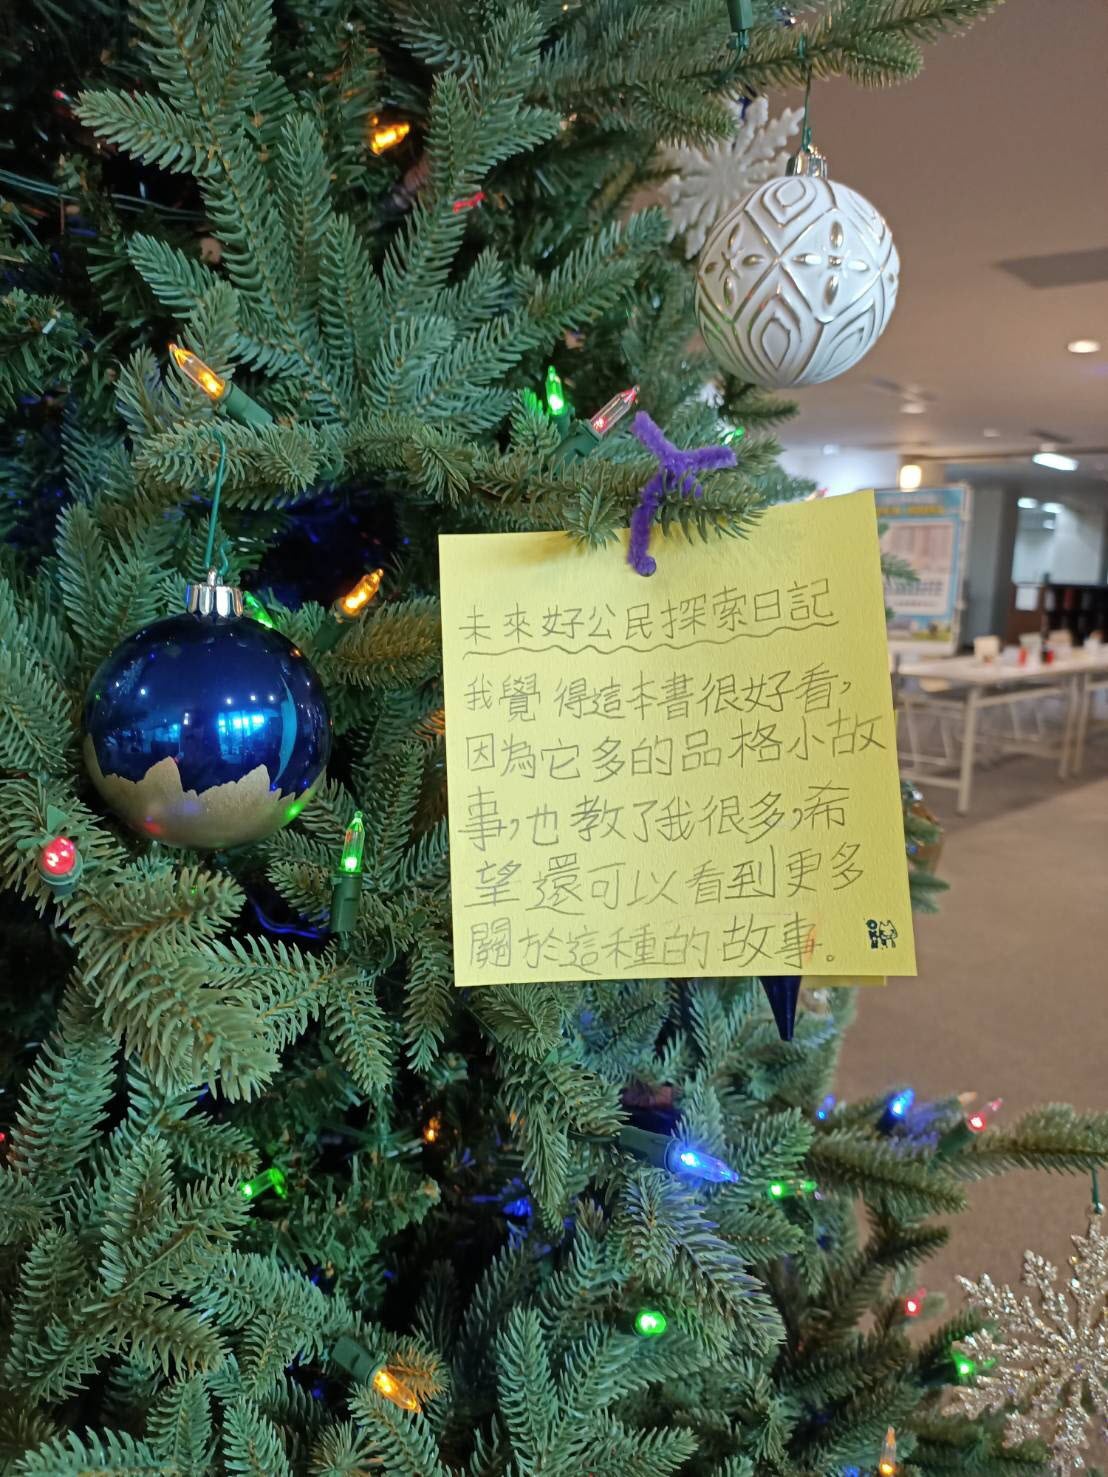 未來好公民探索日記
我覺得這本書很好看,
因為它多的品格小故
事,也教了我很多,希
望還可以看到更多
關於這種的故事。